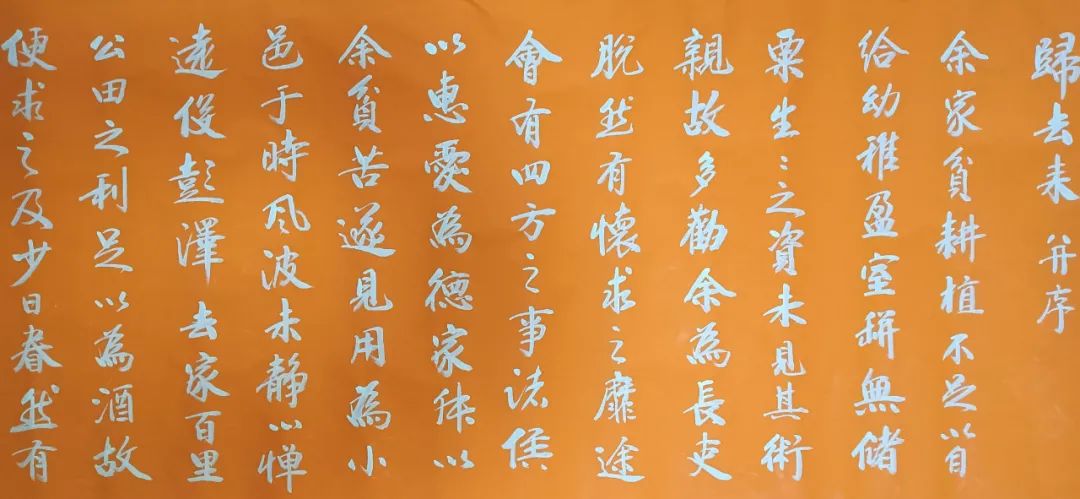 歸去来 并序
余家貧耕植不足以自
給幼稚盈室缾無儲
粟生〻之資未見其術
親故多勸余為長吏
脫然有懷求之靡途
會有四方之事諸侯
以惠愛為德家叔以
余貧苦遂見用為小
邑于時風波未静心惮
遠役彭澤去家百里
公田之利足以為酒故
便求之及少日眷然有